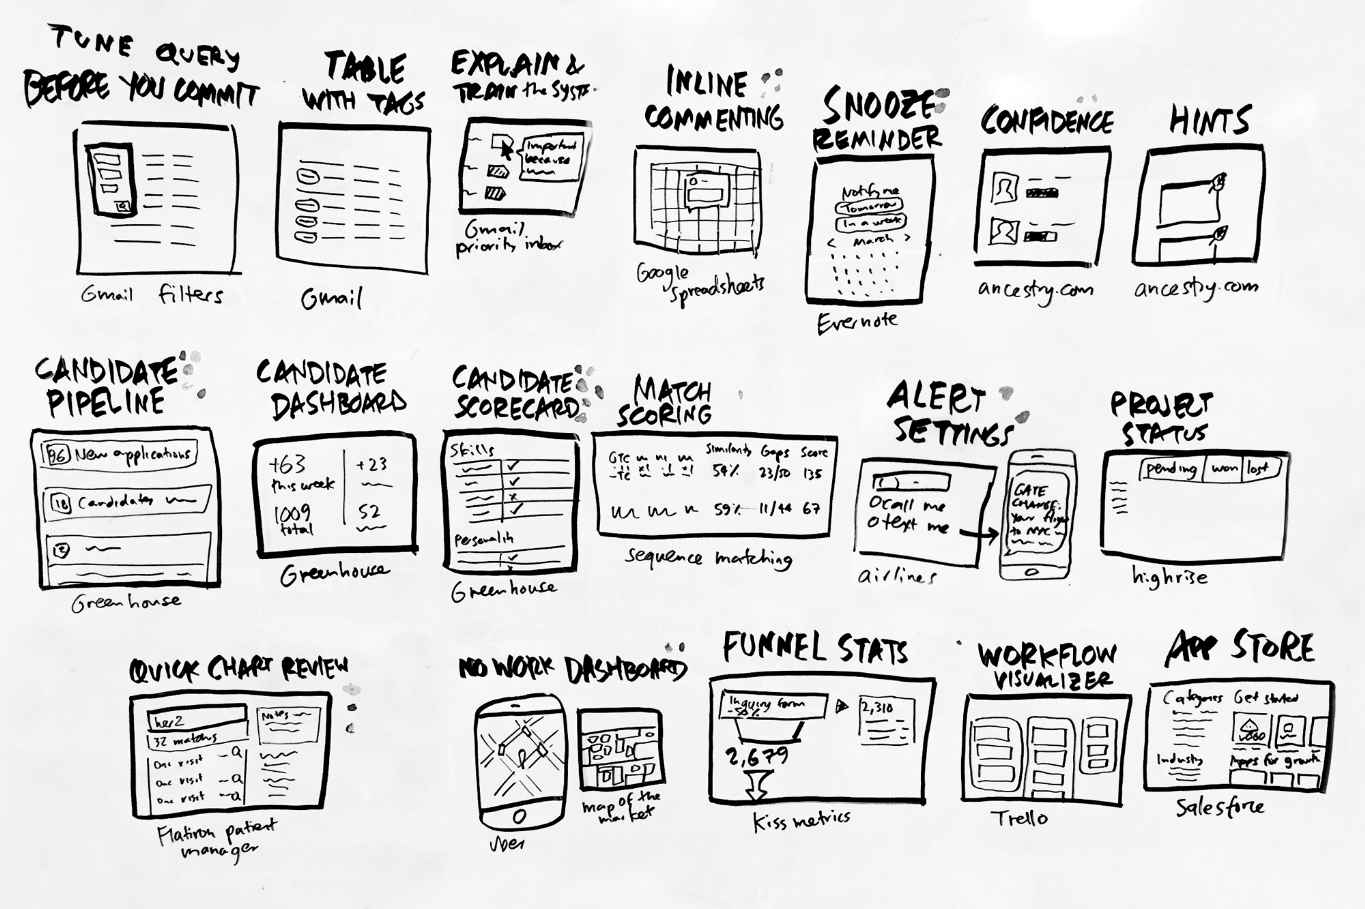 TUNE QUERY
BEFORE YOU COMMIT
Gmail filters
TABLE
WITH TAGS
Gmail
EXPLAIN &
TRAIN the SYST.
Important
because
Gmail
priority inbox
INLINE
COMMENTING
Google
spreadsheets
SNOOZE
REMINDER
Notify me
Tomorrow
In a week
< March >
Evernote
CONFIDENCE
ancestry.com
HINTS
ancestry.com
CANDIDATE
PIPELINE
96 New applications
18 Candidates
2
Greenhouse
CANDIDATE
DASHBOARD
+63
this week
+23
1009
total
52
Greenhouse
CANDIDATE
SCORECARD
Skills
Personality
Greenhouse
MATCH
SCORING
Similarity Gaps Score
GTC
-TC
54% 23/50 135
59% 11/44 67
sequence matching
ALERT
SETTINGS
O call me
O text me
GATE
CHANGE:
your flight
to NYC
airlines
PROJECT
STATUS
pending won lost
highrise
QUICK CHART REVIEW
her2
32 matches
One visit
One visit
One visit
Notes
Flatiron patient
manager
NO WORK DASHBOARD
Uber
map of the
market
FUNNEL STATS
Inquiry form
-50%
2,310
2,679
Kiss metrics
WORKFLOW
VISUALIZER
Trello
APP STORE
Categories
Industry
Get started
Apps for growth
Salesforce